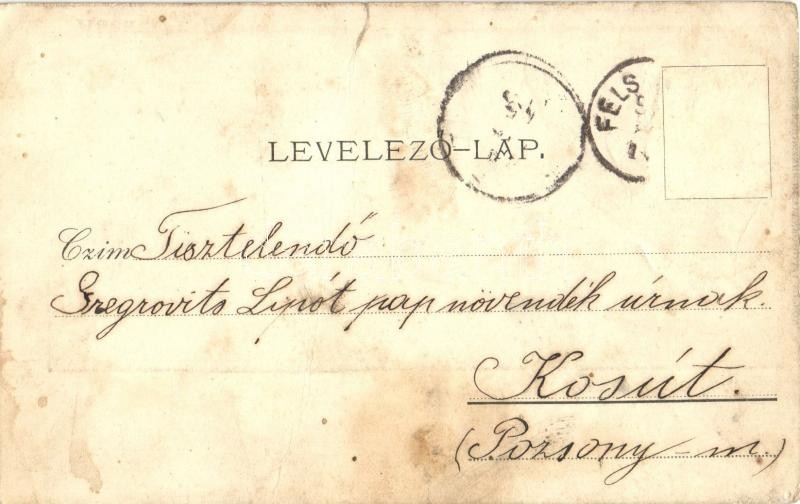 FELS
LEVELEZŐ-LAP.
Czim Tisztelendő
Gregrovits Lipót pap növendék úrnak.
Kosút.
(Pozsony-m.)